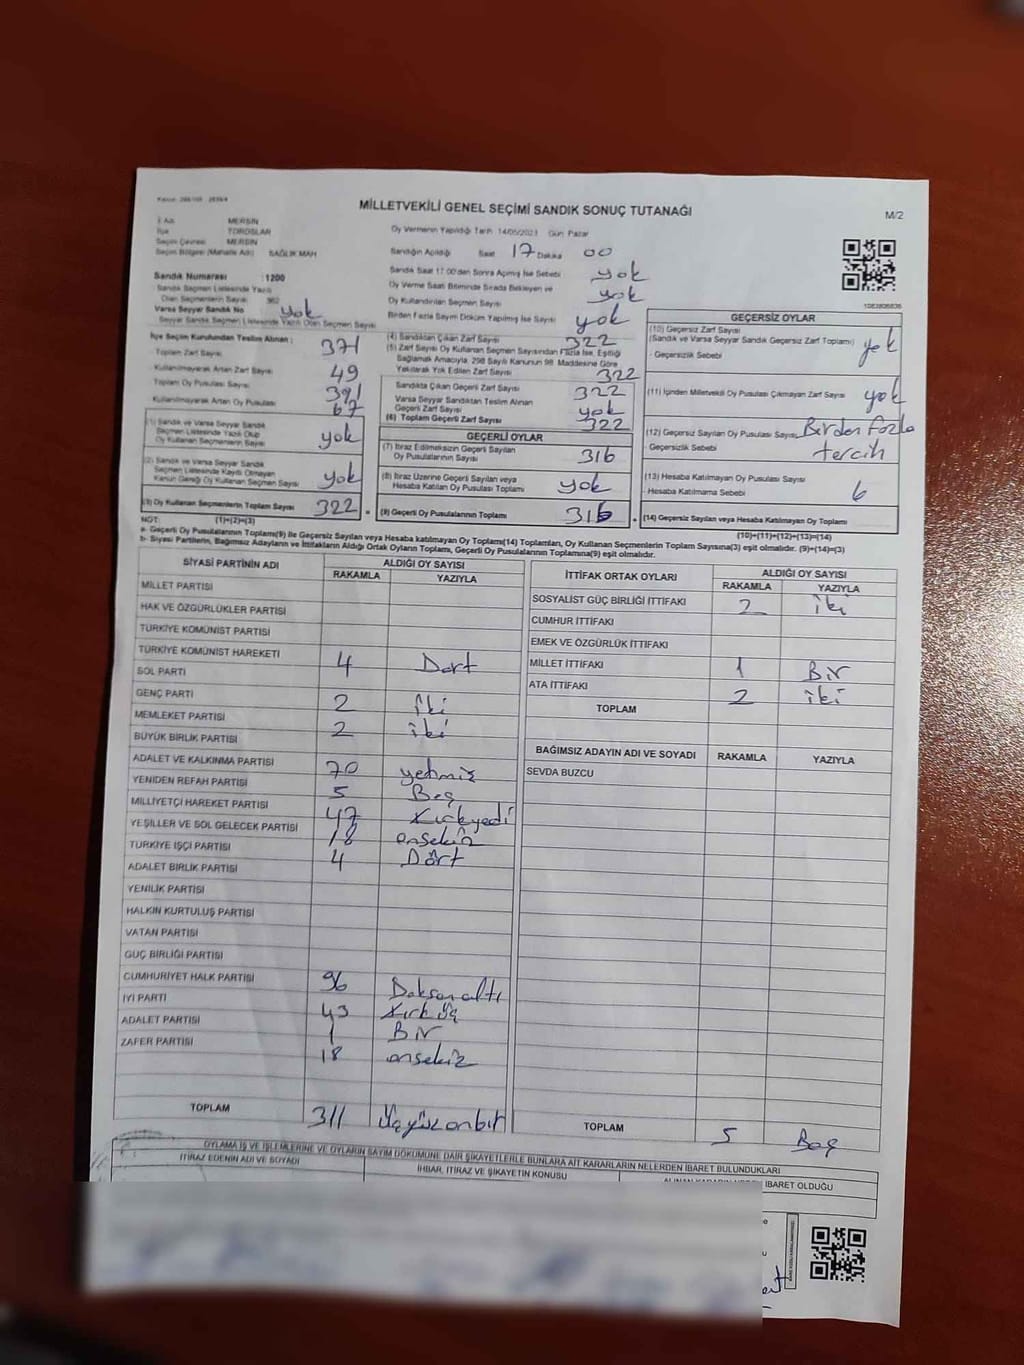 MİLLETVEKİLİ GENEL SEÇİMİ SANDIK SONUÇ TUTANAĞI
M/2
İl Adı MERSİN
İlçe TOROSLAR
Seçim Çevresi MERSİN
Seçim Bölgesi (Mahalle Adı) SAĞLIK MAH
Sandık Numarası : 1200
Sandık Seçmen Listesinde Yazılı
Olan Seçmenlerin Sayısı 362
Varsa Seyyar Sandık No yok
Seyyar Sandık Seçmen Listesinde Yazılı Olan Seçmen Sayısı
Oy Vermenin Yapıldığı Tarih 14/05/2023 Gün Pazar
Sandığın Açıldığı Saat 17 Dakika 00
Sandık Saat 17.00'den Sonra Açılmış İse Sebebi yok
Oy Verme Saati Bitiminde Sırada Bekleyen ve
Oy Kullandırılan Seçmen Sayısı yok
Birden Fazla Sayım Döküm Yapılmış İse Sayısı yok
İlçe Seçim Kurulundan Teslim Alınan :
Toplam Zarf Sayısı 371
Kullanılmayarak Artan Zarf Sayısı 49
Toplam Oy Pusulası Sayısı 391
Kullanılmayarak Artan Oy Pusulası 67
(1) Sandık ve Varsa Seyyar Sandık
Seçmen Listesinde Yazılı Olup
Oy Kullanan Seçmenlerin Sayısı yok
(2) Sandık ve Varsa Seyyar Sandık
Seçmen Listesinde Kayıtlı Olmayan
Kanun Gereği Oy Kullanan Seçmen Sayısı yok
(3) Oy Kullanan Seçmenlerin Toplam Sayısı 322
(4) Sandıktan Çıkan Zarf Sayısı 322
(5) Zarf Sayısı Oy Kullanan Seçmen Sayısından Fazla İse, Eşitliği
Sağlamak Amacıyla, 298 Sayılı Kanunun 98. Maddesine Göre
Yakılarak Yok Edilen Zarf Sayısı 322
Sandıkta Çıkan Geçerli Zarf Sayısı 322
Varsa Seyyar Sandıktan Teslim Alınan
Geçerli Zarf Sayısı yok
(6) Toplam Geçerli Zarf Sayısı 322
GEÇERLİ OYLAR
(7) İtiraz Edilmeksizin Geçerli Sayılan
Oy Pusulalarının Sayısı 316
(8) İtiraz Üzerine Geçerli Sayılan veya
Hesaba Katılan Oy Pusulası Toplamı yok
(9) Geçerli Oy Pusulalarının Toplamı 316
GEÇERSİZ OYLAR
(10) Geçersiz Zarf Sayısı
(Sandık ve Varsa Seyyar Sandık Geçersiz Zarf Toplamı)
- Geçersizlik Sebebi yok
(11) İçinden Milletvekili Oy Pusulası Çıkmayan Zarf Sayısı yok
(12) Geçersiz Sayılan Oy Pusulası Sayısı Birden fazla
- Geçersizlik Sebebi tercih
(13) Hesaba Katılmayan Oy Pusulası Sayısı
- Hesaba Katılmama Sebebi 6
(14) Geçersiz Sayılan veya Hesaba Katılmayan Oy Pusulası Toplamı
NOT: (1)+(2)=(3)
(10)+(11)+(12)+(13)=(14)
a- Geçerli Oy Pusulalarının Toplamı(9) ile Geçersiz Sayılan veya Hesaba katılmayan Oy Pusulası Toplamı(14) Toplamları, Oy Kullanan Seçmenlerin Toplam Sayısına(3) eşit olmalıdır. (9)+(14)=(3)
b- Siyasi Partilerin, Bağımsız Adayların ve İttifakların Aldığı Ortak Oyların Toplamı, Geçerli Oy Pusulalarının Toplamına(9) eşit olmalıdır.
SİYASİ PARTİNİN ADI ALDIĞI OY SAYISI
RAKAMLA YAZIYLA
MİLLET PARTİSİ
HAK VE ÖZGÜRLÜKLER PARTİSİ
TÜRKİYE KOMÜNİST PARTİSİ
TÜRKİYE KOMÜNİST HAREKETİ
SOL PARTİ 4 Dört
GENÇ PARTİ
MEMLEKET PARTİSİ 2 iki
BÜYÜK BİRLİK PARTİSİ 2 iki
ADALET VE KALKINMA PARTİSİ 70 yetmiş
YENİDEN REFAH PARTİSİ 5 Beş
MİLLİYETÇİ HAREKET PARTİSİ 47 Kırkyedi
YEŞİLLER VE SOL GELECEK PARTİSİ 18 onsekiz
TÜRKİYE İŞÇİ PARTİSİ 4 Dört
ADALET BİRLİK PARTİSİ
YENİLİK PARTİSİ
HALKIN KURTULUŞ PARTİSİ
VATAN PARTİSİ
GÜÇ BİRLİĞİ PARTİSİ
CUMHURİYET HALK PARTİSİ 96 Doksanaltı
İYİ PARTİ 43 Kırküç
ADALET PARTİSİ 1 Bir
ZAFER PARTİSİ 18 onsekiz
TOPLAM 311 Üçyüzonbir
İTTİFAK ORTAK OYLARI ALDIĞI OY SAYISI
RAKAMLA YAZIYLA
SOSYALİST GÜÇ BİRLİĞİ İTTİFAKI 2 iki
CUMHUR İTTİFAKI
EMEK VE ÖZGÜRLÜK İTTİFAKI
MİLLET İTTİFAKI 1 Bir
ATA İTTİFAKI 2 iki
TOPLAM
BAĞIMSIZ ADAYIN ADI VE SOYADI RAKAMLA YAZIYLA
SEVDA BUZCU
TOPLAM 5 Beş
OYLAMA İŞ VE İŞLEMLERİNE VE OYLARIN SAYIM DÖKÜMÜNE DAİR ŞİKAYETLERLE BUNLARA AİT KARARLARIN NELERDEN İBARET BULUNDUKLARI
İTİRAZ EDENİN ADI VE SOYADI
İHBAR, İTİRAZ VE ŞİKAYETİN KONUSU
İBARET OLDUĞU